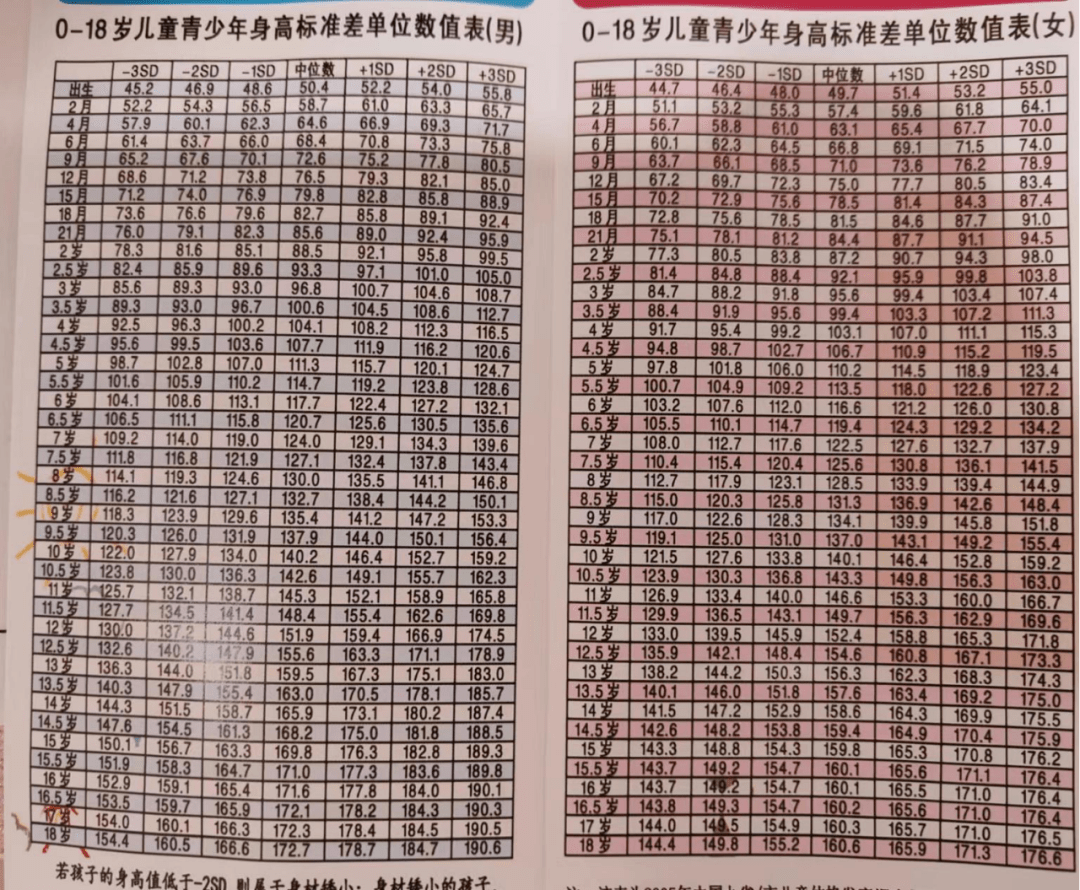 0-18岁儿童青少年身高标准差单位数值表(男)
-3SD -2SD -1SD 中位数 +1SD +2SD +3SD
出生 45.2 46.9 48.6 50.4 52.2 54.0 55.8
2月 52.2 54.3 56.5 58.7 61.0 63.3 65.7
4月 57.9 60.1 62.3 64.6 66.9 69.3 71.7
6月 61.4 63.7 66.0 68.4 70.8 73.3 75.8
9月 65.2 67.6 70.1 72.6 75.2 77.8 80.5
12月 68.6 71.2 73.8 76.5 79.3 82.1 85.0
15月 71.2 74.0 76.9 79.8 82.8 85.8 88.9
18月 73.6 76.6 79.6 82.7 85.8 89.1 92.4
21月 76.0 79.1 82.3 85.6 89.0 92.4 95.9
2岁 78.3 81.6 85.1 88.5 92.1 95.8 99.5
2.5岁 82.4 85.9 89.6 93.3 97.1 101.0 105.0
3岁 85.6 89.3 93.0 96.8 100.7 104.6 108.7
3.5岁 89.3 93.0 96.7 100.6 104.5 108.6 112.7
4岁 92.5 96.3 100.2 104.1 108.2 112.3 116.5
4.5岁 95.6 99.5 103.6 107.7 111.9 116.2 120.6
5岁 98.7 102.8 107.0 111.3 115.7 120.1 124.7
5.5岁 101.6 105.9 110.2 114.7 119.2 123.8 128.6
6岁 104.1 108.6 113.1 117.7 122.4 127.2 132.1
6.5岁 106.5 111.1 115.8 120.7 125.6 130.5 135.6
7岁 109.2 114.0 119.0 124.0 129.1 134.3 139.6
7.5岁 111.8 116.8 121.9 127.1 132.4 137.8 143.4
8岁 114.1 119.3 124.6 130.0 135.5 141.1 146.8
8.5岁 116.2 121.6 127.1 132.7 138.4 144.2 150.1
9岁 118.3 123.9 129.6 135.4 141.2 147.2 153.3
9.5岁 120.3 126.0 131.9 137.9 144.0 150.1 156.4
10岁 122.0 127.9 134.0 140.2 146.4 152.7 159.2
10.5岁 123.8 130.0 136.3 142.6 149.1 155.7 162.3
11岁 125.7 132.1 138.7 145.3 152.1 158.9 165.8
11.5岁 127.7 134.5 141.4 148.4 155.4 162.6 169.8
12岁 130.0 137.2 144.6 151.9 159.4 166.9 174.5
12.5岁 132.6 140.2 147.9 155.6 163.3 171.1 178.9
13岁 136.3 144.0 151.8 159.5 167.3 175.1 183.0
13.5岁 140.3 147.9 155.4 163.0 170.5 178.1 185.7
14岁 144.3 151.5 158.7 165.9 173.1 180.2 187.4
14.5岁 147.6 154.5 161.3 168.2 175.0 181.8 188.5
15岁 150.1 156.7 163.3 169.8 176.3 182.8 189.3
15.5岁 151.9 158.3 164.7 171.0 177.3 183.6 189.8
16岁 152.9 159.1 165.4 171.6 177.8 184.0 190.1
16.5岁 153.5 159.7 165.9 172.1 178.2 184.3 190.3
17岁 154.0 160.1 166.3 172.3 178.4 184.5 190.5
18岁 154.4 160.5 166.6 172.7 178.7 184.7 190.6
若孩子的身高值低于-2SD
0-18岁儿童青少年身高标准差单位数值表(女)
-3SD -2SD -1SD 中位数 +1SD +2SD +3SD
出生 44.7 46.4 48.0 49.7 51.4 53.2 55.0
2月 51.1 53.2 55.3 57.4 59.6 61.8 64.1
4月 56.7 58.8 61.0 63.1 65.4 67.7 70.0
6月 60.1 62.3 64.5 66.8 69.1 71.5 74.0
9月 63.7 66.1 68.5 71.0 73.6 76.2 78.9
12月 67.2 69.7 72.3 75.0 77.7 80.5 83.4
15月 70.2 72.9 75.6 78.5 81.4 84.3 87.4
18月 72.8 75.6 78.5 81.5 84.6 87.7 91.0
21月 75.1 78.1 81.2 84.4 87.7 91.1 94.5
2岁 77.3 80.5 83.8 87.2 90.7 94.3 98.0
2.5岁 81.4 84.8 88.4 92.1 95.9 99.8 103.8
3岁 84.7 88.2 91.8 95.6 99.4 103.4 107.4
3.5岁 88.4 91.9 95.6 99.4 103.3 107.2 111.3
4岁 91.7 95.4 99.2 103.1 107.0 111.1 115.3
4.5岁 94.8 98.7 102.7 106.7 110.9 115.2 119.5
5岁 97.8 101.8 106.0 110.2 114.5 118.9 123.4
5.5岁 100.7 104.9 109.2 113.5 118.0 122.6 127.2
6岁 103.2 107.6 112.0 116.6 121.2 126.0 130.8
6.5岁 105.5 110.1 114.7 119.4 124.3 129.2 134.2
7岁 108.0 112.7 117.6 122.5 127.6 132.7 137.9
7.5岁 110.4 115.4 120.4 125.6 130.8 136.1 141.5
8岁 112.7 117.9 123.1 128.5 133.9 139.4 144.9
8.5岁 115.0 120.3 125.8 131.3 136.9 142.6 148.4
9岁 117.0 122.6 128.3 134.1 139.9 145.8 151.8
9.5岁 119.1 125.0 131.0 137.0 143.1 149.2 155.4
10岁 121.5 127.6 133.8 140.1 146.4 152.8 159.2
10.5岁 123.9 130.3 136.8 143.3 149.8 156.3 163.0
11岁 126.9 133.4 140.0 146.6 153.3 160.0 166.7
11.5岁 129.9 136.5 143.1 149.7 156.3 162.9 169.6
12岁 133.0 139.5 145.9 152.4 158.8 165.3 171.8
12.5岁 135.9 142.1 148.4 154.6 160.8 167.1 173.3
13岁 138.2 144.2 150.3 156.3 162.3 168.3 174.3
13.5岁 140.1 146.0 151.8 157.6 163.4 169.2 175.0
14岁 141.5 147.2 152.9 158.6 164.3 169.9 175.5
14.5岁 142.6 148.2 153.8 159.4 164.9 170.4 175.9
15岁 143.3 148.8 154.3 159.8 165.3 170.8 176.2
15.5岁 143.7 149.2 154.7 160.1 165.6 171.1 176.4
16岁 143.7 149.2 154.7 160.1 165.5 171.0 176.4
16.5岁 143.8 149.3 154.7 160.2 165.6 171.0 176.4
17岁 144.0 149.5 154.9 160.3 165.7 171.0 176.5
18岁 144.4 149.8 155.2 160.6 165.9 171.3 176.6